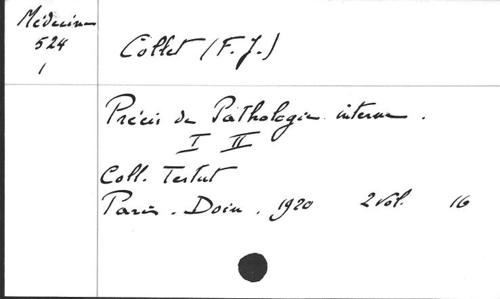 Médecine
524
1
Collet (F. J.)
Précis de Pathologie interne.
I II
Coll. Testut
Paris. Doin. 1920 2 vol. 16